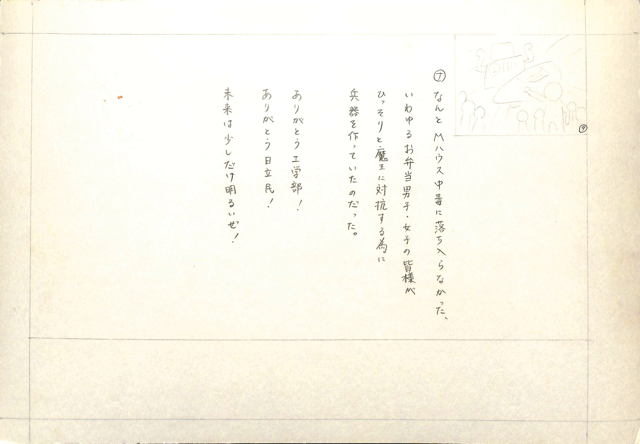 ⑦ なんとMハウス中毒に落ち入らなかった、
いわゆるお弁当男子・女子の皆様が
ひっそりと魔王に対抗する為に
兵器を作っていたのだった。
ありがとう工学部!
ありがとう日立民!
未来は少しだけ明るいぜ!